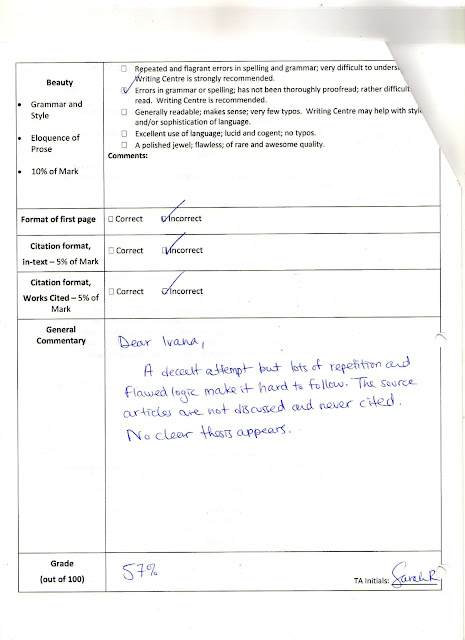 Beauty
• Grammar and Style
• Eloquence of Prose
• 10% of Mark
☐ Repeated and flagrant errors in spelling and grammar; very difficult to
Writing Centre is strongly recommended.
☑ Errors in grammar or spelling; has not been thoroughly proofread; rather difficult
read. Writing Centre is recommended.
☐ Generally readable; makes sense; very few typos. Writing Centre may help with
and/or sophistication of language.
☐ Excellent use of language; lucid and cogent; no typos.
☐ A polished jewel; flawless; of rare and awesome quality.
Comments:
Format of first page
☐ Correct ☑ Incorrect
Citation format,
in-text – 5% of Mark
☐ Correct ☑ Incorrect
Citation format,
Works Cited – 5% of
Mark
☐ Correct ☑ Incorrect
General
Commentary
Dear Ivana,
A decent attempt but lots of repetition and
flawed logic make it hard to follow. The source
articles are not discussed and never cited.
No clear thesis appears.
Grade
(out of 100)
57%
TA Initials: Sarah R